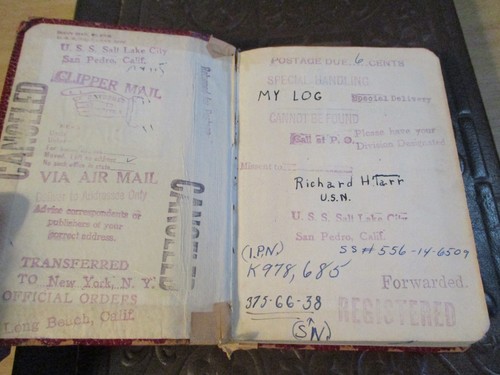 U. S. S. Salt Lake City
San Pedro, Calif.
CLIPPER MAIL
CANCELED
VIA AIR MAIL
Deliver to Addressee Only
Advise correspondents or
publishers of your
correct address.
CANCELED
TRANSFERRED
TO New York, N. Y.
OFFICIAL ORDERS
Long Beach, Calif.
POSTAGE DUE 6 CENTS
SPECIAL HANDLING
MY LOG
Special Delivery
CANNOT BE FOUND
Call at P. O.
Please have your
Division Designated
Missent to
Richard H Tarr
U.S.N.
U. S. S. Salt Lake City
San Pedro, Calif.
(I.P.N.)
SS# 556-14-6509
K978,685
Forwarded.
375-66-38
REGISTERED
(S.N.)